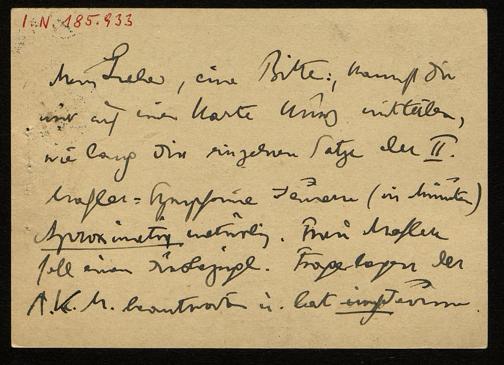 I.N. 185.933
Mein Lieber, eine Bitte: kannst Du
mir auf einer Karte kurz mitteilen,
wie lang die einzelnen Sätze der II.
Mahler-Symphonie dauern (in Minuten)
Approximativ natürlich. Frau Mahler
soll einen der
A.K.M. beantworten u. hat